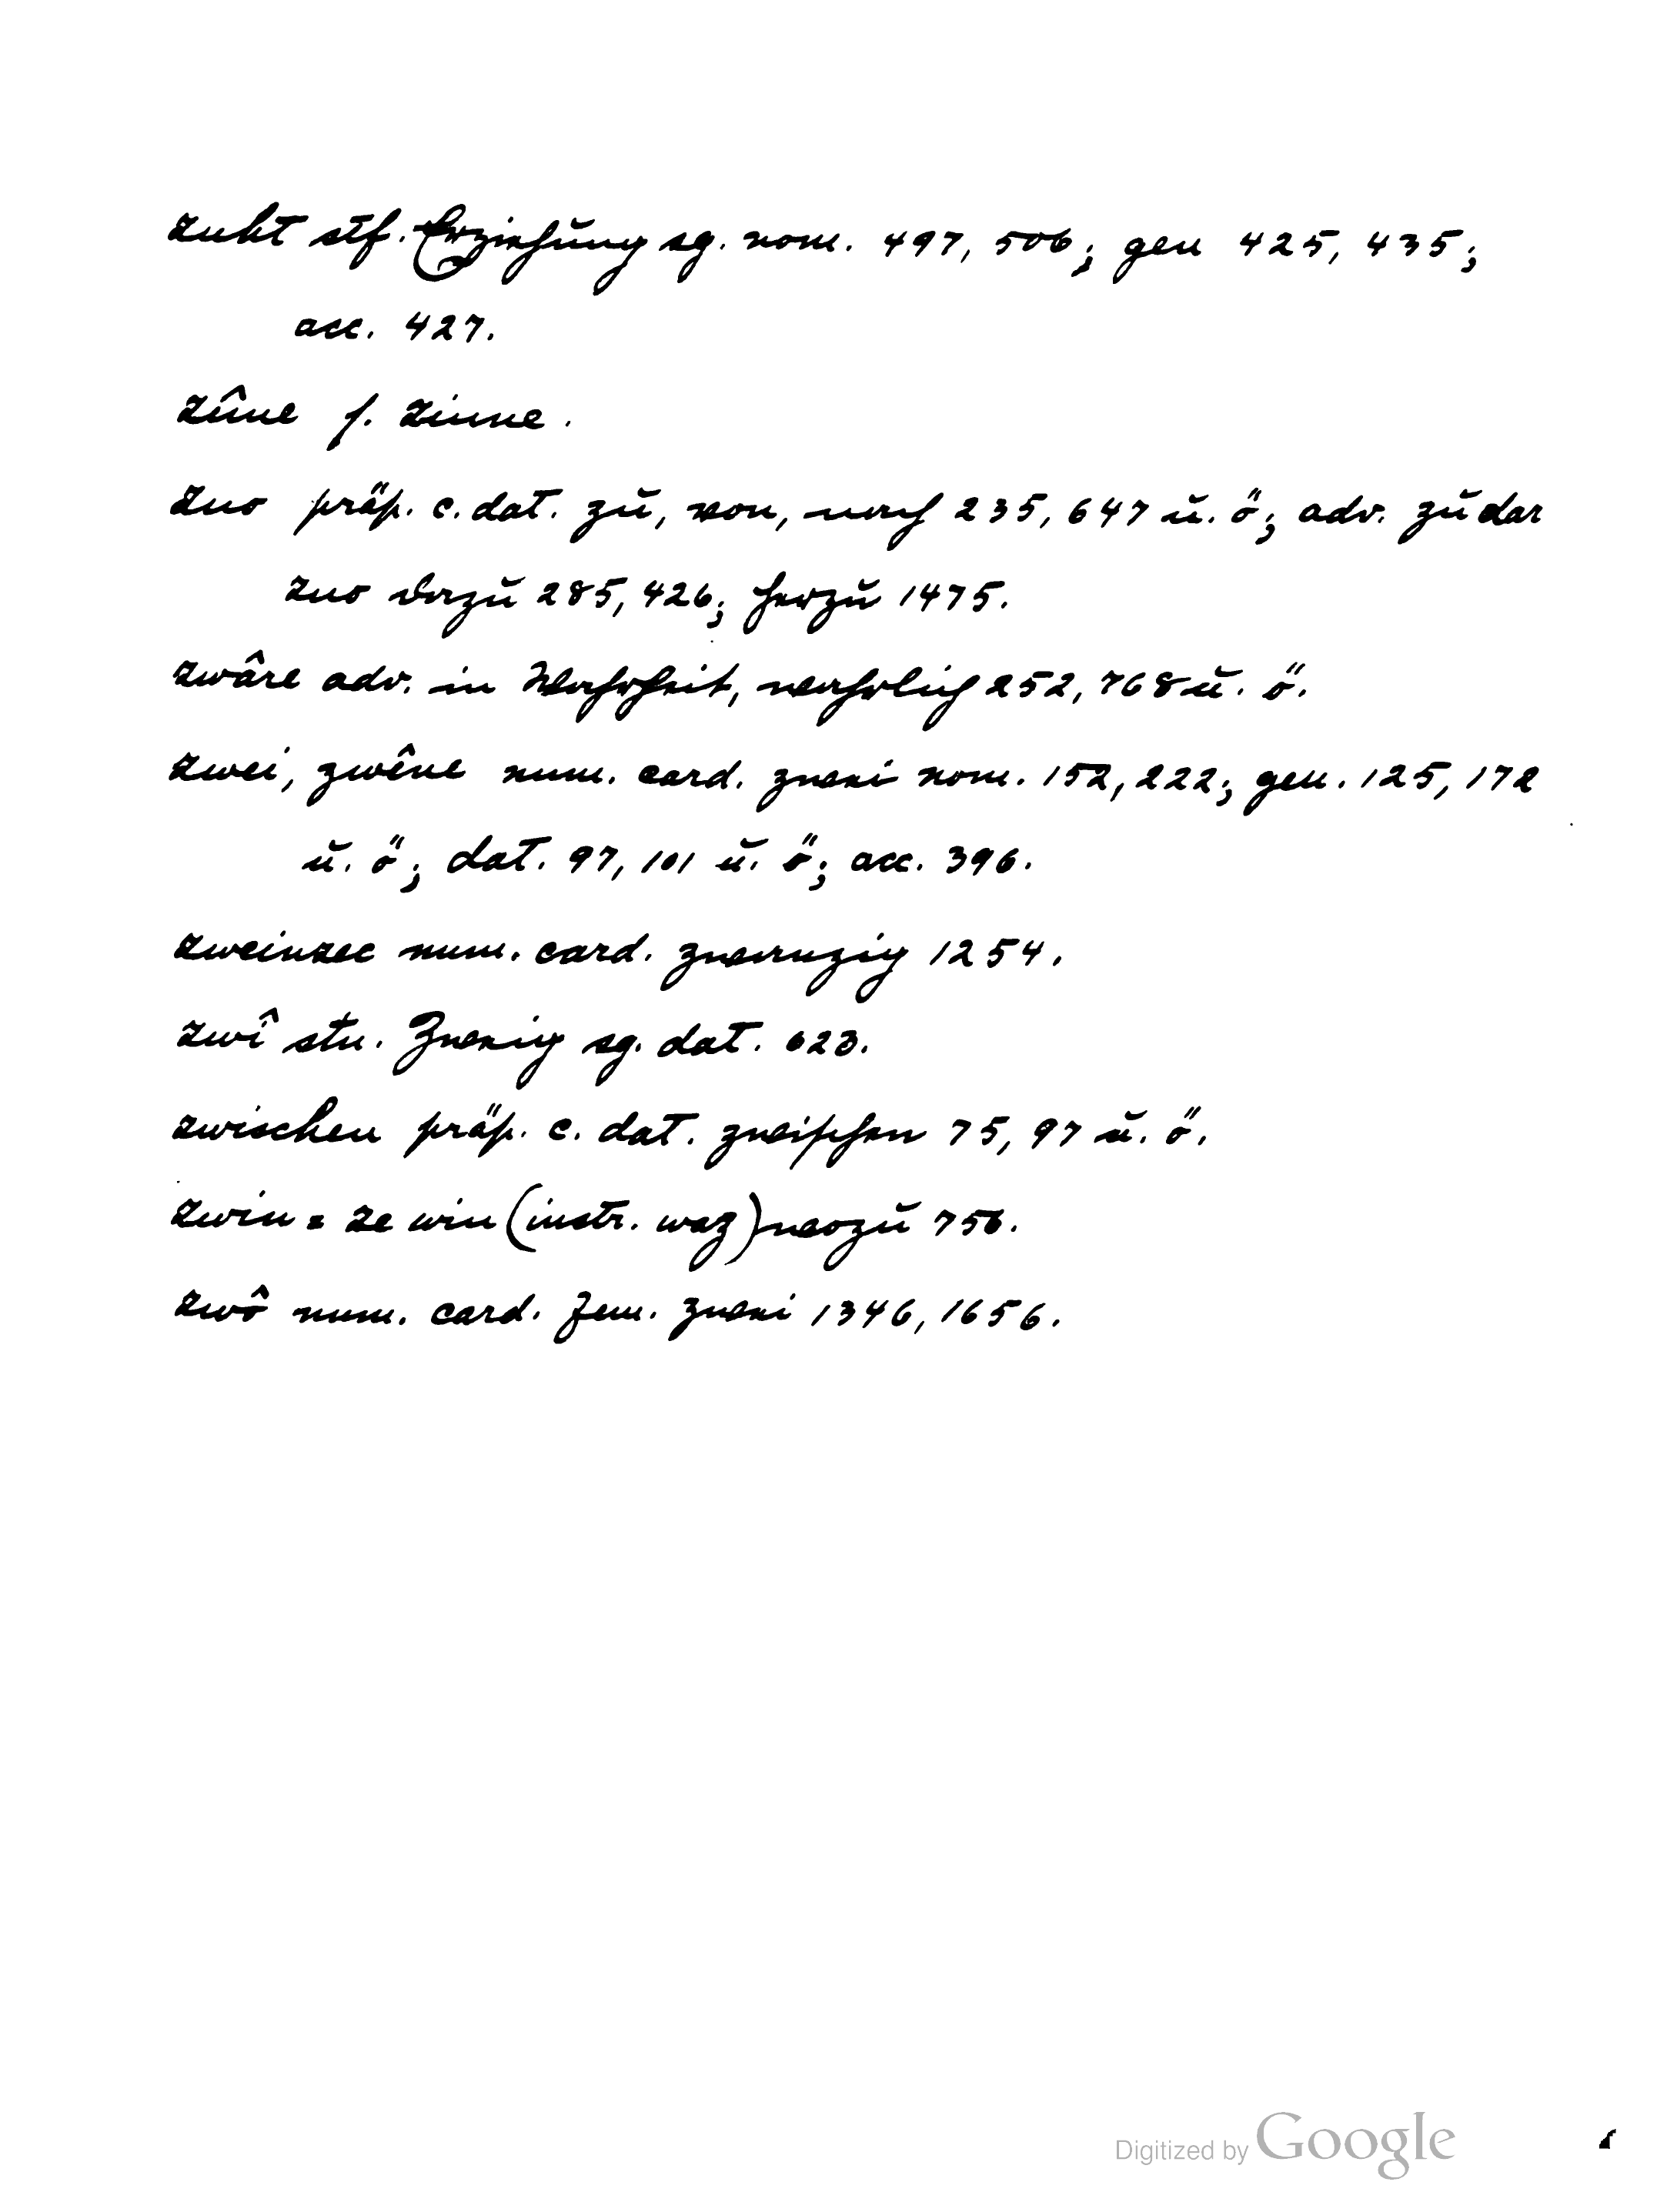 zuht stf. Erziehung sg. nom. 497, 506; gen 425, 435;
acc. 427.
zûne f. zinne.
zuo präp. c. dat. zu, von, nach 235, 647 u. ö; adv. zu dar
zuo dazu 285, 426; herzu 1475.
zwâre adv. in Wahrheit, wahrlich 252, 768 u. ö.
zwei, zwêne num. card. zwei nom. 152, 222; gen. 125, 172
u. ö; dat. 97, 101 u. ö; acc. 396.
zweinzec num. card. zwanzig 1254.
zwî stn. Zweig sg. dat. 623.
zwischen präp. c. dat. zwischen 75, 97 u. ö.
zwiu = ze wiu (instr. waz) wozu 756.
zwô num. card. fem. zwei 1346, 1656.
Digitized by Google